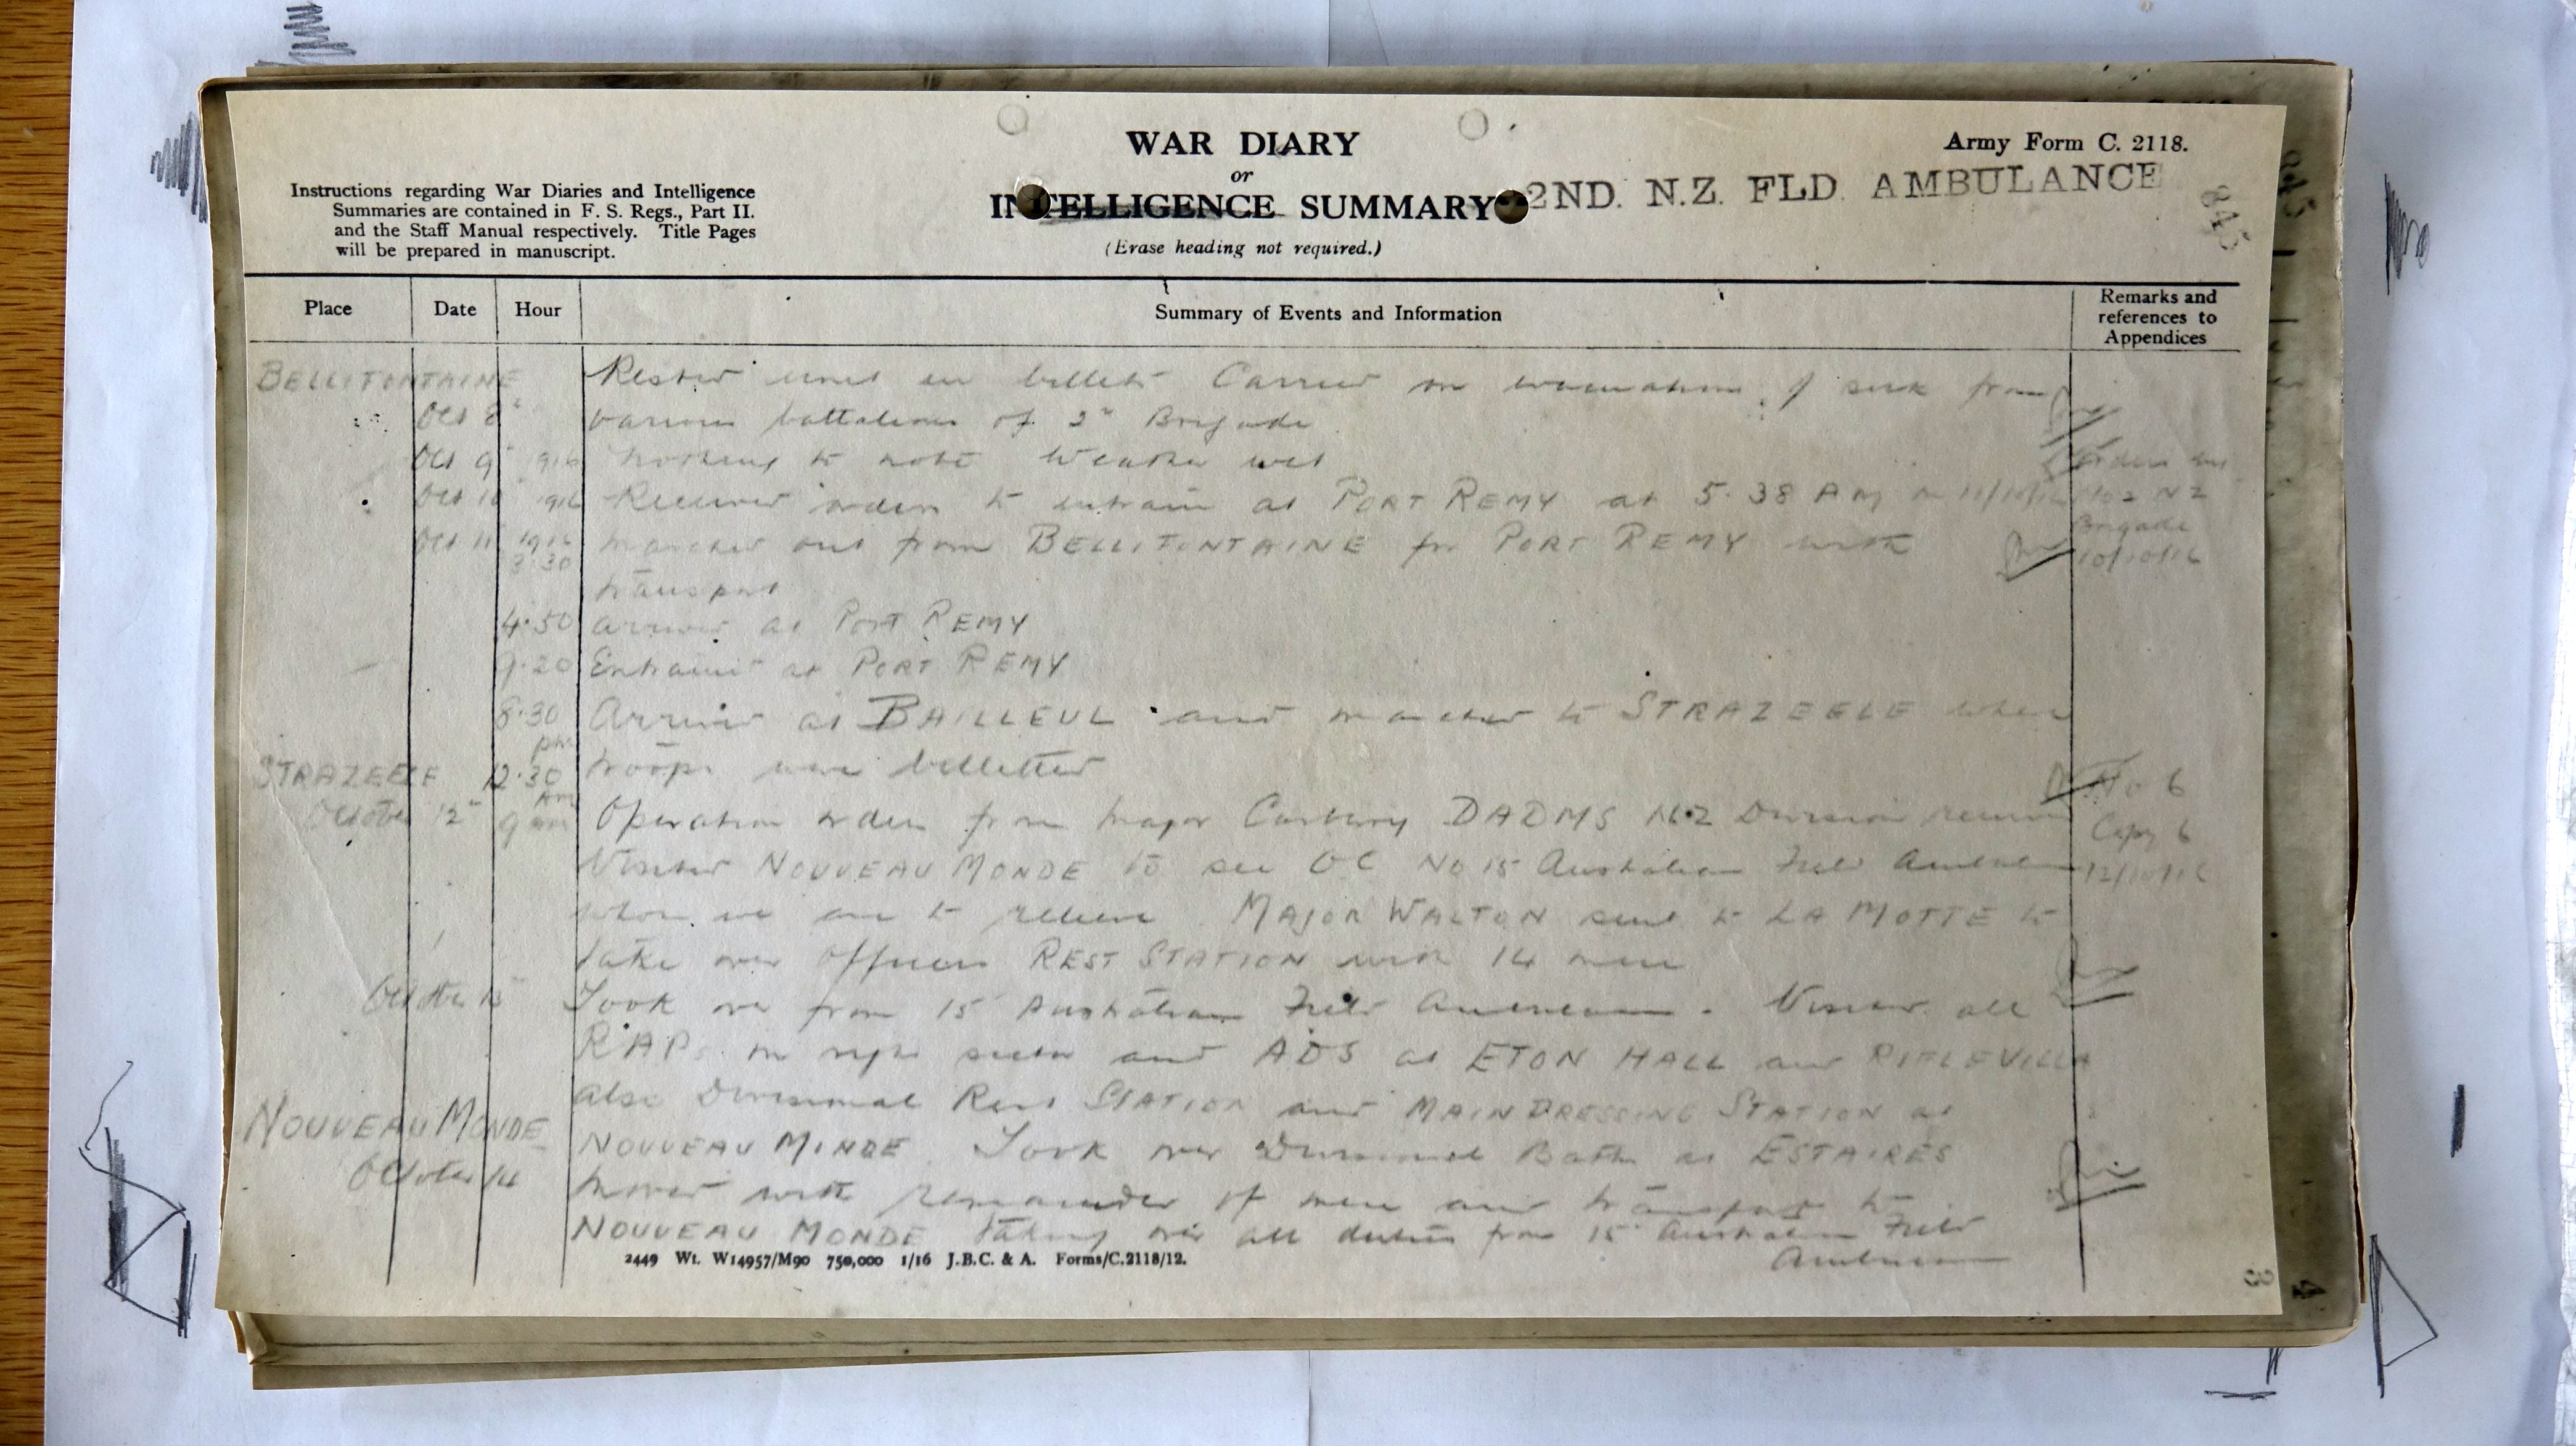 WAR DIARY
or
INTELLIGENCE SUMMARY
(Erase heading not required.)
Army Form C. 2118.
2ND. N.Z. FLD. AMBULANCE
845
Instructions regarding War Diaries and Intelligence
Summaries are contained in F. S. Regs., Part II.
and the Staff Manual respectively. Title Pages
will be prepared in manuscript.
Place Date Hour Summary of Events and Information Remarks and references to Appendices
BELLIFONTAINE Rested unit in billets Carried on evacuation of sick from
Oct 8" various battalions of 2" Brigade
Oct 9" 916 Nothing to note Weather wet
Oct 10" 916 Received orders to entrain at PORT REMY at 5.38 AM on 11/10/16 Orders No 2 NZ
Oct 11" 1916 Marched out from BELLIFONTAINE for PORT REMY with Brigade
3.30 transport 10/10/16
4.50 Arrived at PORT REMY
9.20 Entrained at PORT REMY
8.30 pm Arrived at BAILLEUL and marched to STRAZEELE where
STRAZEELE 12.30 AM troops were billetted No 6
October 12" 9 am Operation orders from Major DADMS N.Z Division received Copy 6
Visited NOUVEAU MONDE to see OC No 15 Australian Field Ambulance 12/10/16
whom we are to relieve MAJOR WALTON sent to LA MOTTE to
take over Officers REST STATION with 14 men
October Took over from 15" Australian Field Ambulance. Visited all
RAPs on right sector and ADS at ETON HALL and RIFLE VILLA
also Divisional Rest STATION and MAIN DRESSING STATION at
NOUVEAU MONDE NOUVEAU MONDE. Took over Divisional Baths at ESTAIRES
October 14 Moved with remainder of men and transport to
NOUVEAU MONDE taking over all duties from 15" Australian Field
Ambulance
2449 Wt. W14957/M90 750,000 1/16 J.B.C. & A. Forms/C.2118/12.